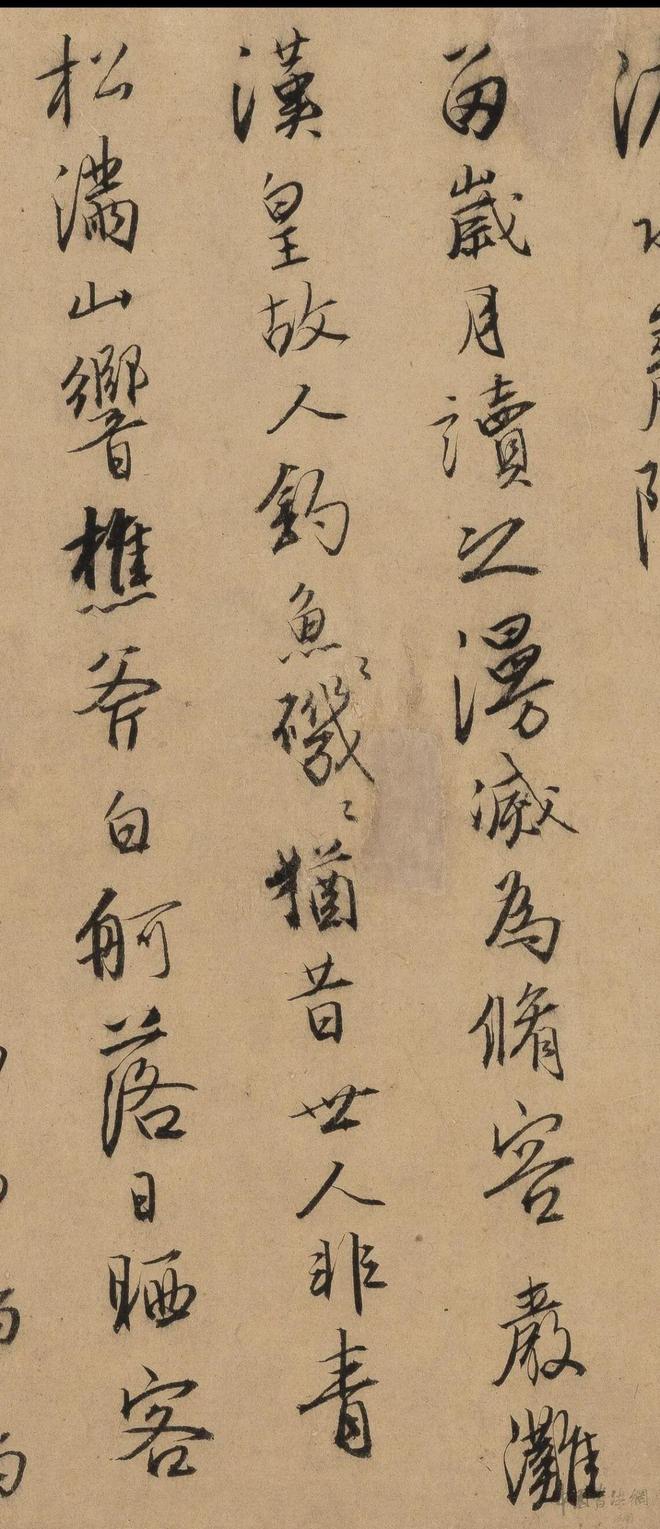 留歲月讀之漫滅為脩容 嚴灘
漢皇故人釣魚磯〻〻猶昔世人非青
松滿山響樵斧白舸落日晒客